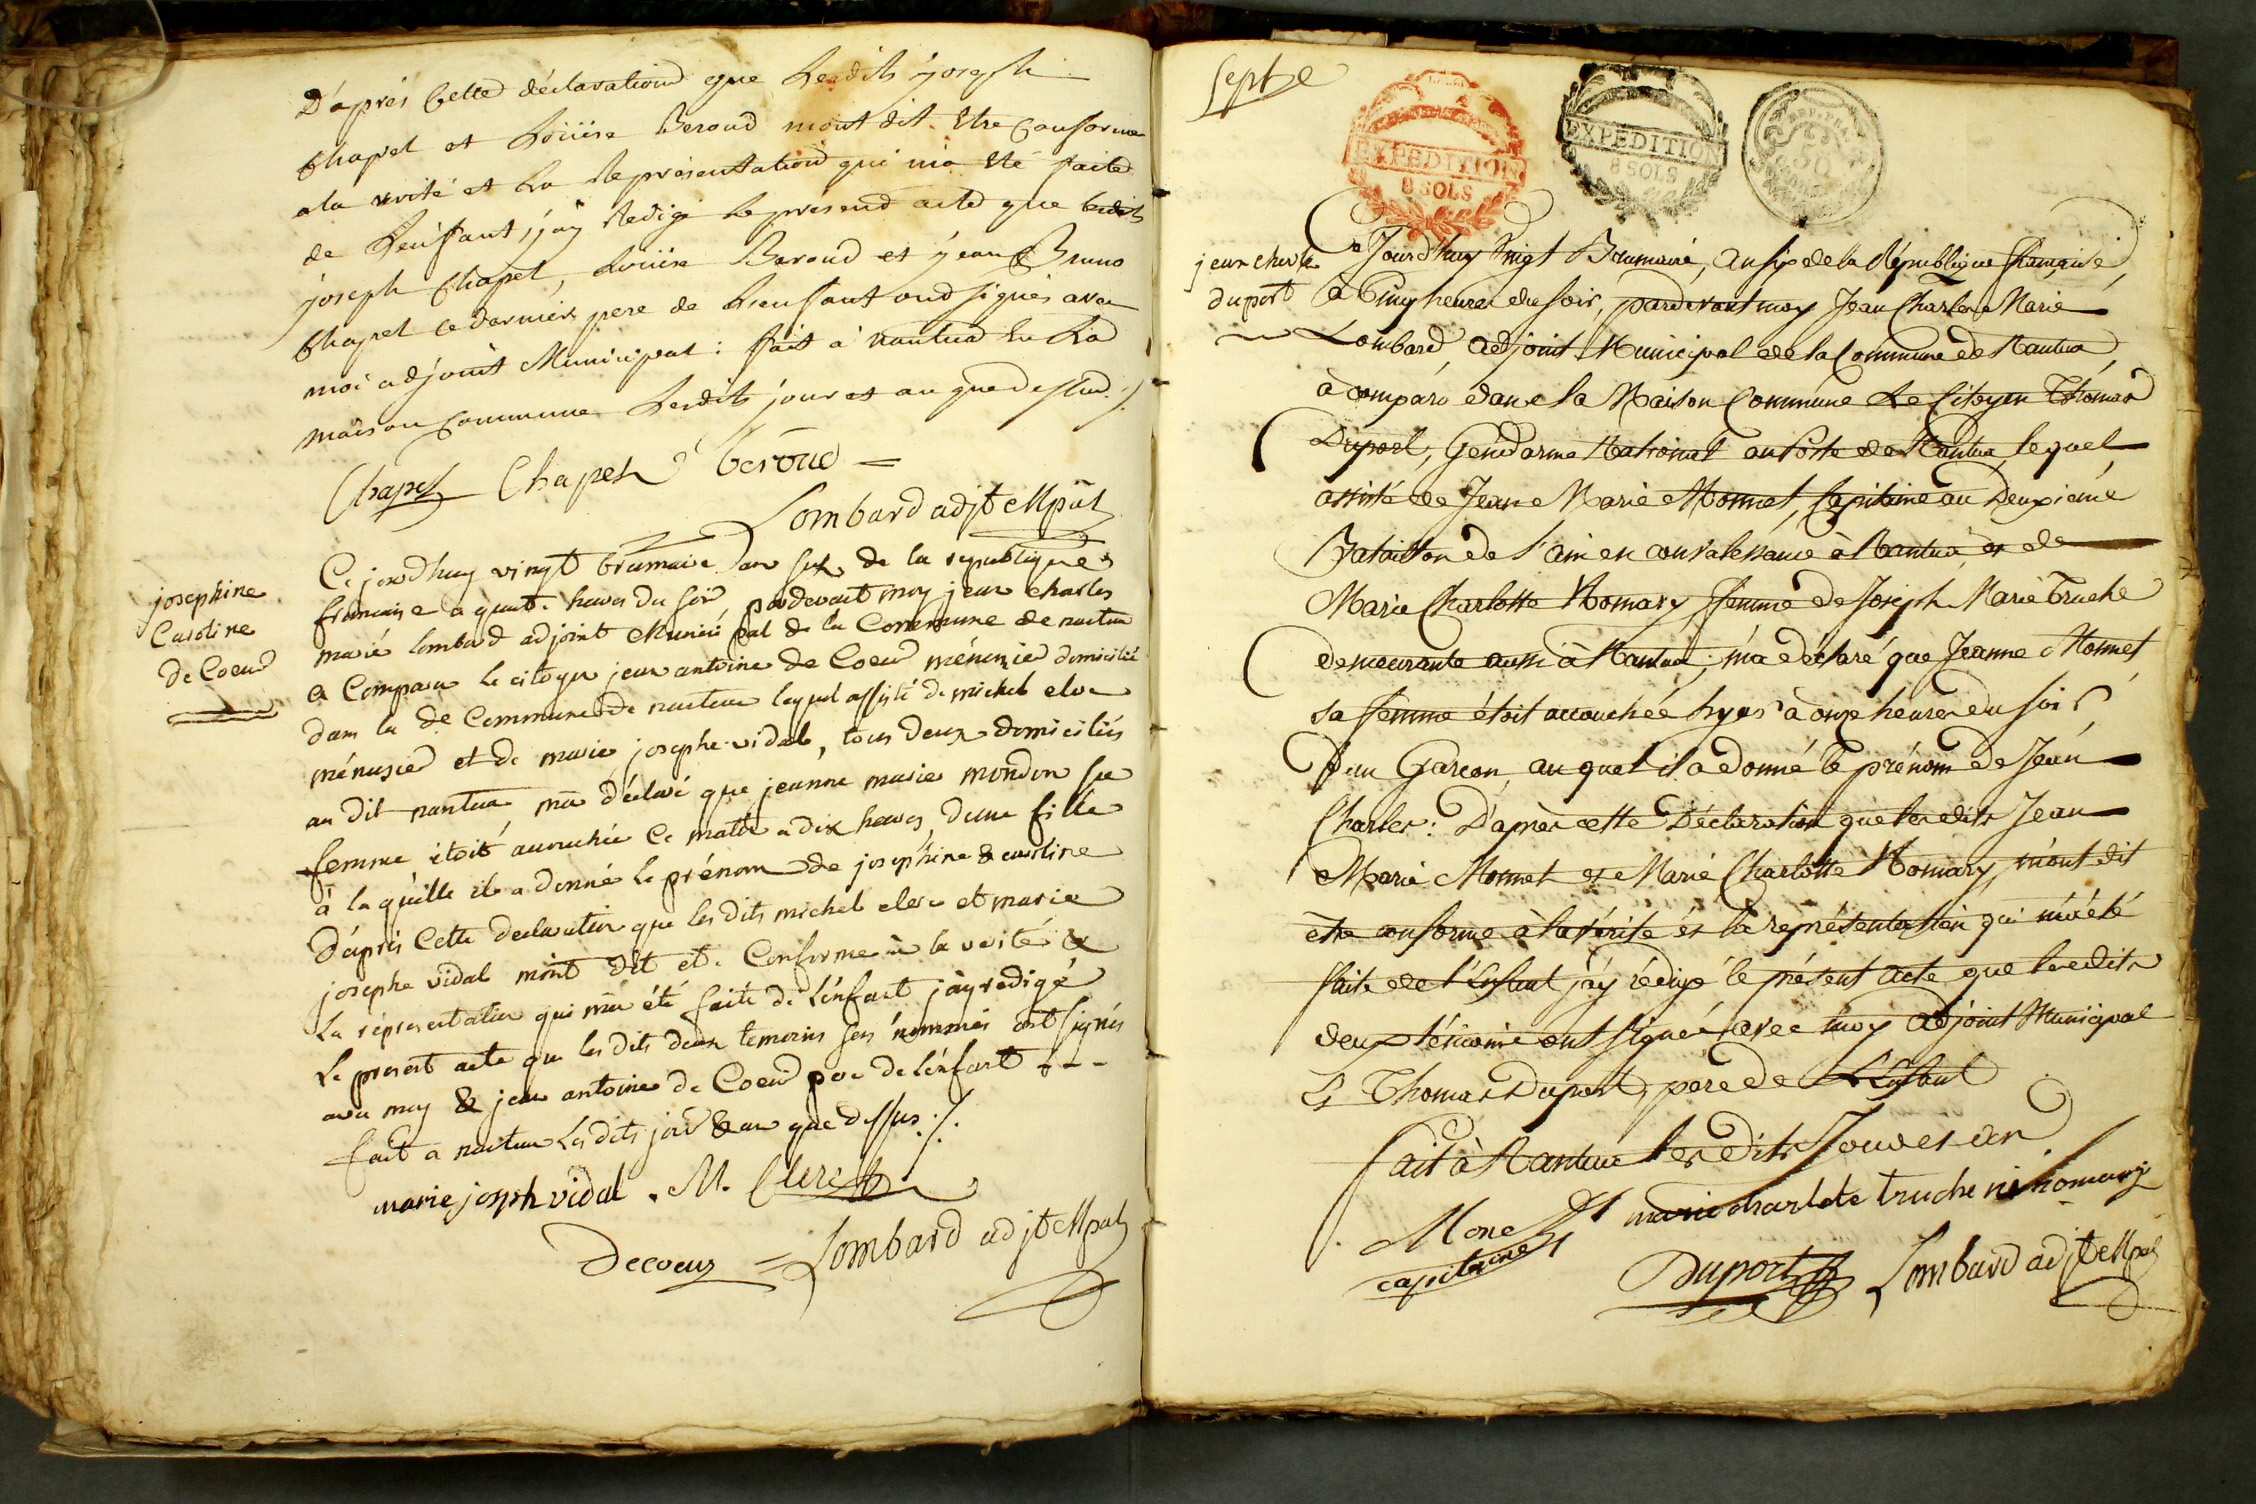 D'après Cette déclaration que Lesdits joseph
Chapel et Loüise Beroud mont dit Etre Conforme
a la verité et La Representation qui ma Eté faite
de Lenfant, jay Redigé Le present acte que lesdits
joseph Chapel, Loüise Beroud et jean Bruno
Chapel ce dernier pere de Lenfant ond signés avec
moi adjoint Municipal : fait à nantua En La
maison Commune Lesdits jour et an que dessus ./.
Chapel Chapel beroud =
Lombard adjt Mpal
josephine
Caroline
de Coeur
Ce jourdhuy vingt brumaire lan six de la republique
francaise a quatre heures du soir pardevant moy jean charles
marie lombard adjoint Municipal de la Commune de nantua
a Comparu le citoyen jean antoine de Coeur ménuzier domicilié
dans la de Commune de nantua lequel assisté de michel clerc
ménusier et de marie josephe vidal, tous deux domiciliés
au dit nantua ma déclaré que jeanne marie mondon sa
femme étoit accouchée Ce matin a dix heures dune fille
à laquelle il a donné le prénom de josephine & caroline
D'après Cette declaration que les dits michel clerc et marie
josephe vidal mont dit etre Conforme à la verité &
La représentation qui ma été faite de lénfant jay redigé
Le present acte que les dits deux temoins sus nommés ont signés
avec moy & jean antoine de Coeur pere de lénfant - - -
fait a nantua Les dits jour & an que dessus ./.
marie joseph vidal . M. Clerc
Decoeur = Lombard adjt Mpal
Sept
EXPEDITION
8 SOLS
EXPEDITION
8 SOLS
50
jean charle
duport
Ce Jourdhuy Vingt Brumaire, An six de la République française,
à Cinq heures du soir, pardevant moy Jean Charles Marie
Lombard adjoint Municipal de la Commune de Nantua,
à comparu dans la Maison Commune Le Citoyen Thomas
Duport, Gendarme National au Poste de Nantua, lequel
assisté de Jean Marie Monnet, Capitaine au Deuxiéme
Bataillon de l'ain en convalessance à Nantua, et de
Marie Charlotte Nomary, femme de Joseph Marie Truche
demeurante aussi à Nantua ; m'a déclaré que Jeanne Monnet
sa femme étoit accouchée hyer à onze heures du soir
d'un Garcon, auquel il a donné le prénom de Jean
Charles : D'après cette Déclaration que lesdits Jean
Marie Monnet et Marie Charlotte Nomary m'ont dit
être conforme à la vérité et la représentation qui m'a été
faite de l'Enfant j'ay rédigé le présent acte que lesdits
deux témoins ont signé avec moy adjoint Municipal
Et Thomas Duport, père de L'Enfant
fait à Nantua lesdits Jour et an
Monet marie charlote truche né nomary
capitaine
Duport Lombard adjt Mpal